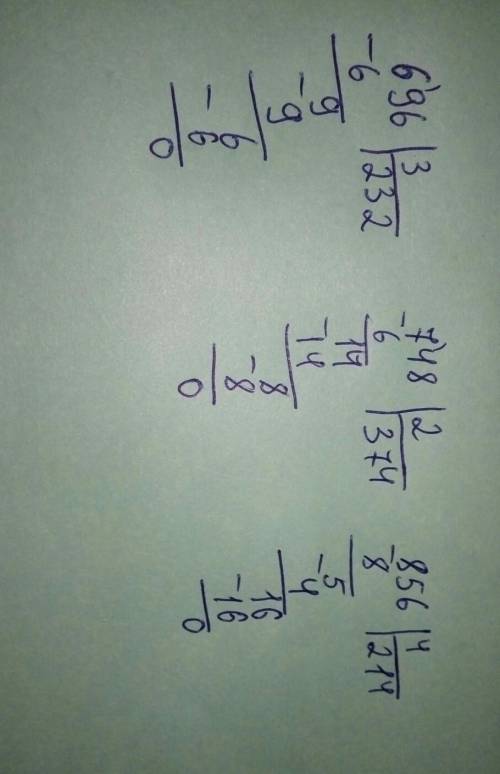 696 | 3
-6 | 232
9
-9
6
-6
0
748 | 2
-6 | 374
14
-14
8
-8
0
856 | 4
-8 | 214
5
-4
16
-16
0